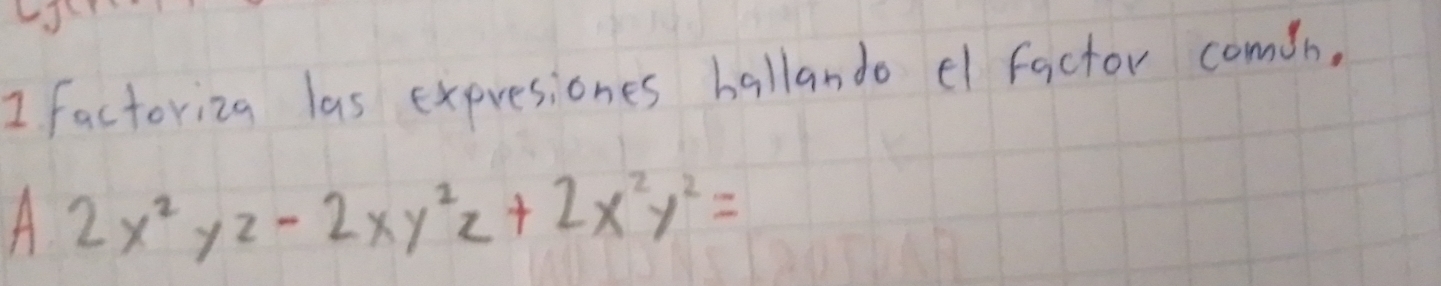 1 Factoriza las expresiones hallando el factor común.
A 2x²yz - 2xy²z + 2x²y² =